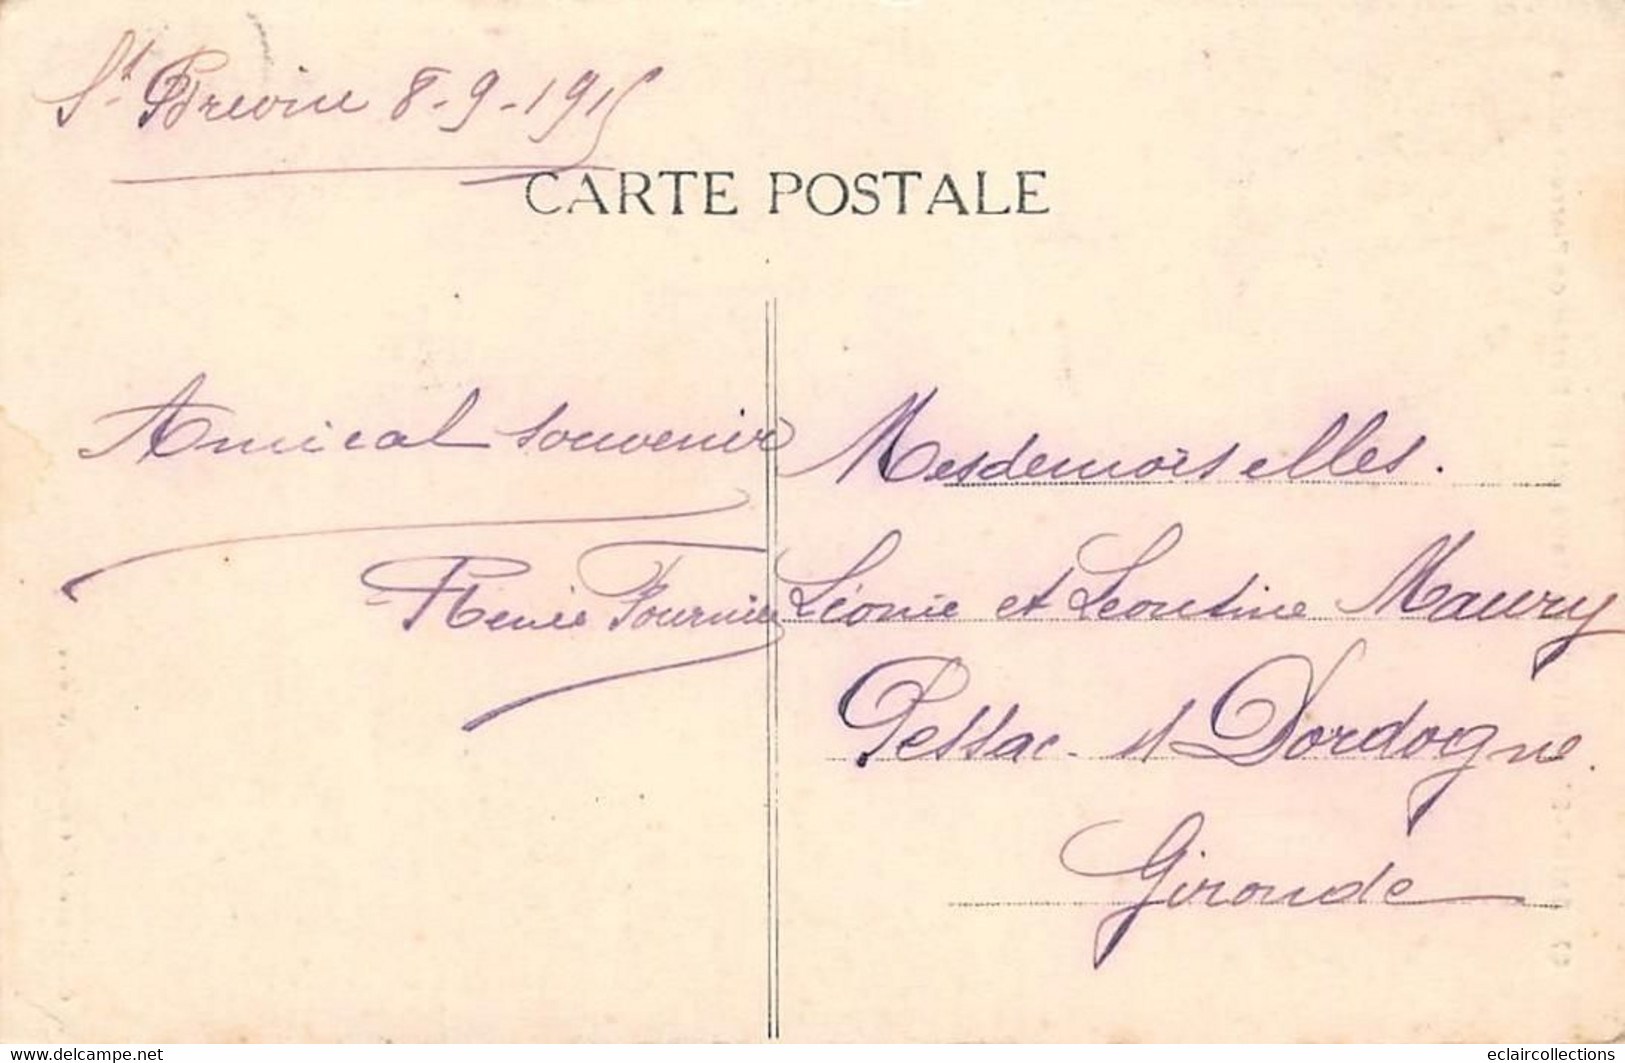 St Brevin 8-9-1915
CARTE POSTALE
Amical souvenir
Renée Fournier
Mesdemoiselles.
Léonie et Leontine Maury
Pessac s/ Dordogne.
Gironde
www.delcampe.net
eclaircollections